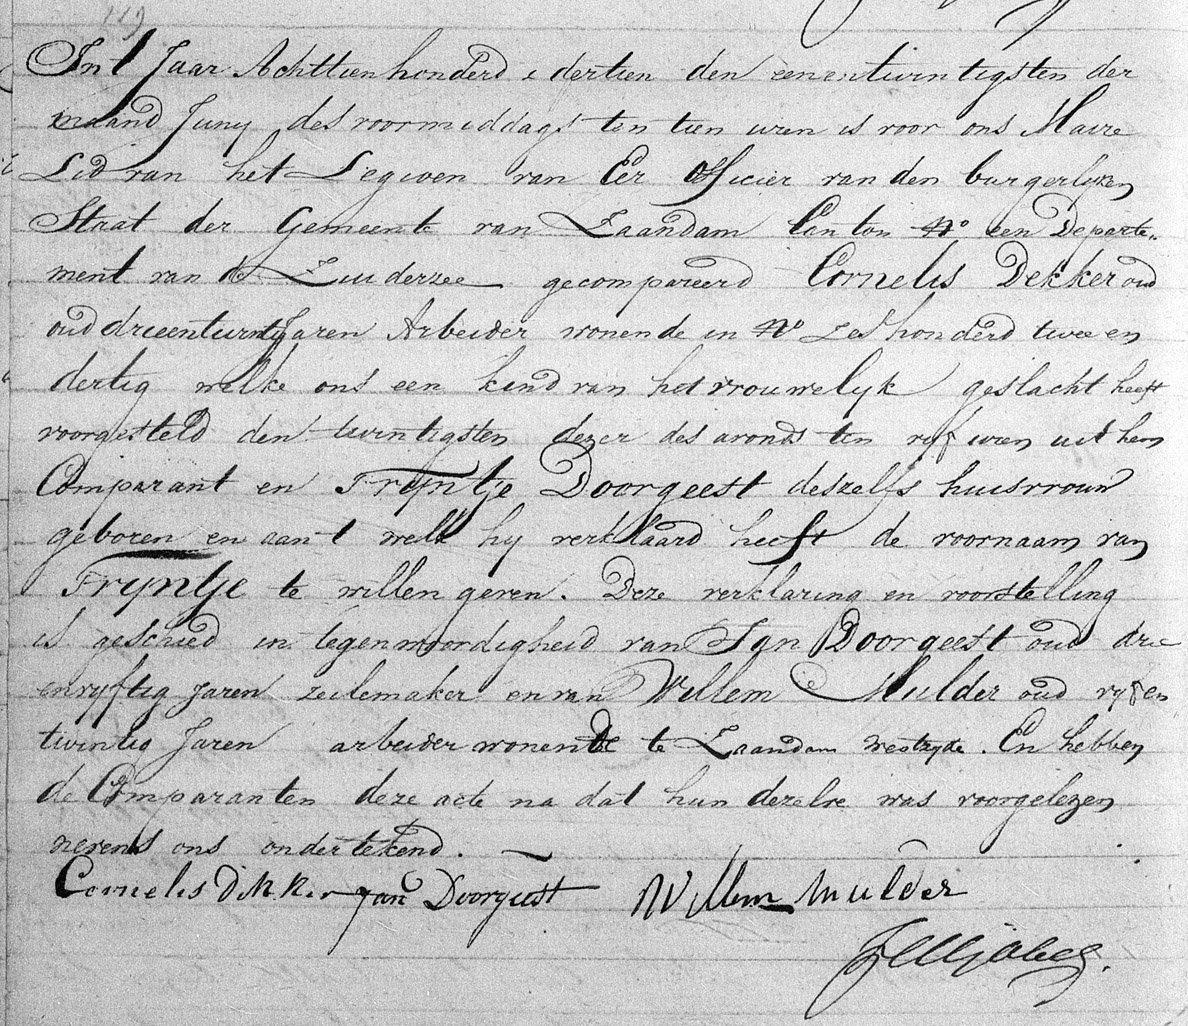 119
In't Jaar Achttienhonderd dertien den eenentwintigsten der
maand Juny des voormiddags ten tien uren is voor ons Maire
Lid van het Legioen van Eer Officier van den burgerlyken
Staat der Gemeente van Zaandam Canton No een Departe„
ment van de Zuiderzee gecompareerd Cornelis Dekker oud
oud drieentwintig Jaren Arbeider wonende in No Zeshonderd twee en
dertig welke ons een kind van het vrouwelyk geslacht heeft
voorgesteld den twintigsten dezer des avonds ten vyf uren uit hem
Comparant en Tryntje Doorgeest deszelfs huisvrouw
geboren en aan 't welk hy verklaard heeft de voornaam van
Tryntje te willen geven. Deze verklaring en voorstelling
is geschied in tegenwoordigheid van Jan Doorgeest oud drie
en vyftig Jaren zeilemaker en van Willem Mulder oud vyf en
twintig Jaren arbeider wonende te Zaandam westzyde. En hebben
de Comparanten deze acte na dat hun dezelve was voorgelezen
nevens ons ondertekend.
Cornelis Dekker Jan Doorgeest Willem Mulder